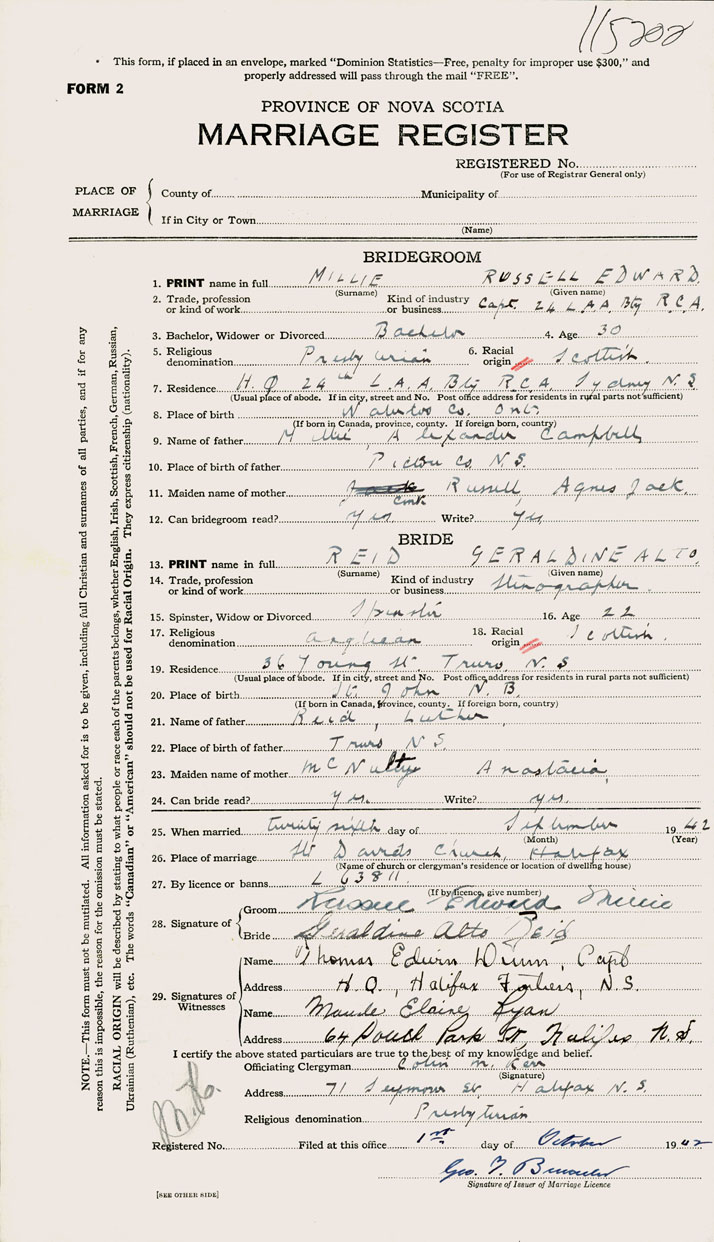 115202
This form, if placed in an envelope, marked "Dominion Statistics—Free, penalty for improper use $300," and
properly addressed will pass through the mail "FREE".
FORM 2
PROVINCE OF NOVA SCOTIA
MARRIAGE REGISTER
REGISTERED No.
(For use of Registrar General only)
PLACE OF MARRIAGE
County of Municipality of
If in City or Town
(Name)
BRIDEGROOM
1. PRINT name in full MILLIE RUSSELL EDWARD
(Surname) (Given name)
2. Trade, profession or kind of work Kind of industry or business Capt. 24 L.A.A. Bty R.C.A.
3. Bachelor, Widower or Divorced Bachelor 4. Age 30
5. Religious denomination Presbyterian 6. Racial origin Scottish.
7. Residence H.Q. 24th L.A.A. Bty R.C.A. Sydney N.S.
(Usual place of abode. If in city, street and No. Post office address for residents in rural parts not sufficient)
8. Place of birth Waterloo Co. Ont.
(If born in Canada, province, county. If foreign born, country)
9. Name of father Millie, Alexander Campbell
10. Place of birth of father Pictou Co. N.S.
11. Maiden name of mother Russell, Agnes Jack
12. Can bridegroom read? yes Write? yes
BRIDE
13. PRINT name in full REID GERALDINE ALTO
(Surname) (Given name)
14. Trade, profession or kind of work Kind of industry or business Stenographer.
15. Spinster, Widow or Divorced Spinster 16. Age 22
17. Religious denomination Anglican 18. Racial origin Scottish.
19. Residence 36 Young St. Truro, N.S
(Usual place of abode. If in city, street and No. Post office address for residents in rural parts not sufficient)
20. Place of birth St. John N.B.
(If born in Canada, province, county. If foreign born, country)
21. Name of father Reid, Luther
22. Place of birth of father Truro N.S.
23. Maiden name of mother McNulty Anastacia
24. Can bride read? yes. Write? yes.
25. When married twenty sixth day of September 1942
(Month) (Year)
26. Place of marriage St Davids Church, Halifax
(Name of church or clergyman's residence or location of dwelling house)
27. By licence or banns L 63811
(If by licence, give number)
28. Signature of
Groom Russell Edward Millie
Bride Geraldine Alto Reid
29. Signatures of Witnesses
Name Thomas Edwin Dunn, Capt
Address H.Q., Halifax Fortress, N.S.
Name Maude Elaine Ryan
Address 64 South Park St, Halifax N.S.
I certify the above stated particulars are true to the best of my knowledge and belief.
Officiating Clergyman Colin M. Kerr
(Signature)
Address 71 Seymour St Halifax N.S.
Religious denomination Presbyterian
Registered No. Filed at this office 1st day of October 1942
Geo. F.
Signature of Issuer of Marriage Licence
[SEE OTHER SIDE]
NOTE.—This form must not be mutilated. All information asked for is to be given, including full Christian and surnames of all parties, and if for any
reason this is impossible, the reason for the omission must be stated.
RACIAL ORIGIN will be described by stating to what people or race each of the parents belongs, whether English, Irish, Scottish, French, German, Russian,
Ukrainian (Ruthenian), etc. The words "Canadian" or "American" should not be used for Racial Origin. They express citizenship (nationality).